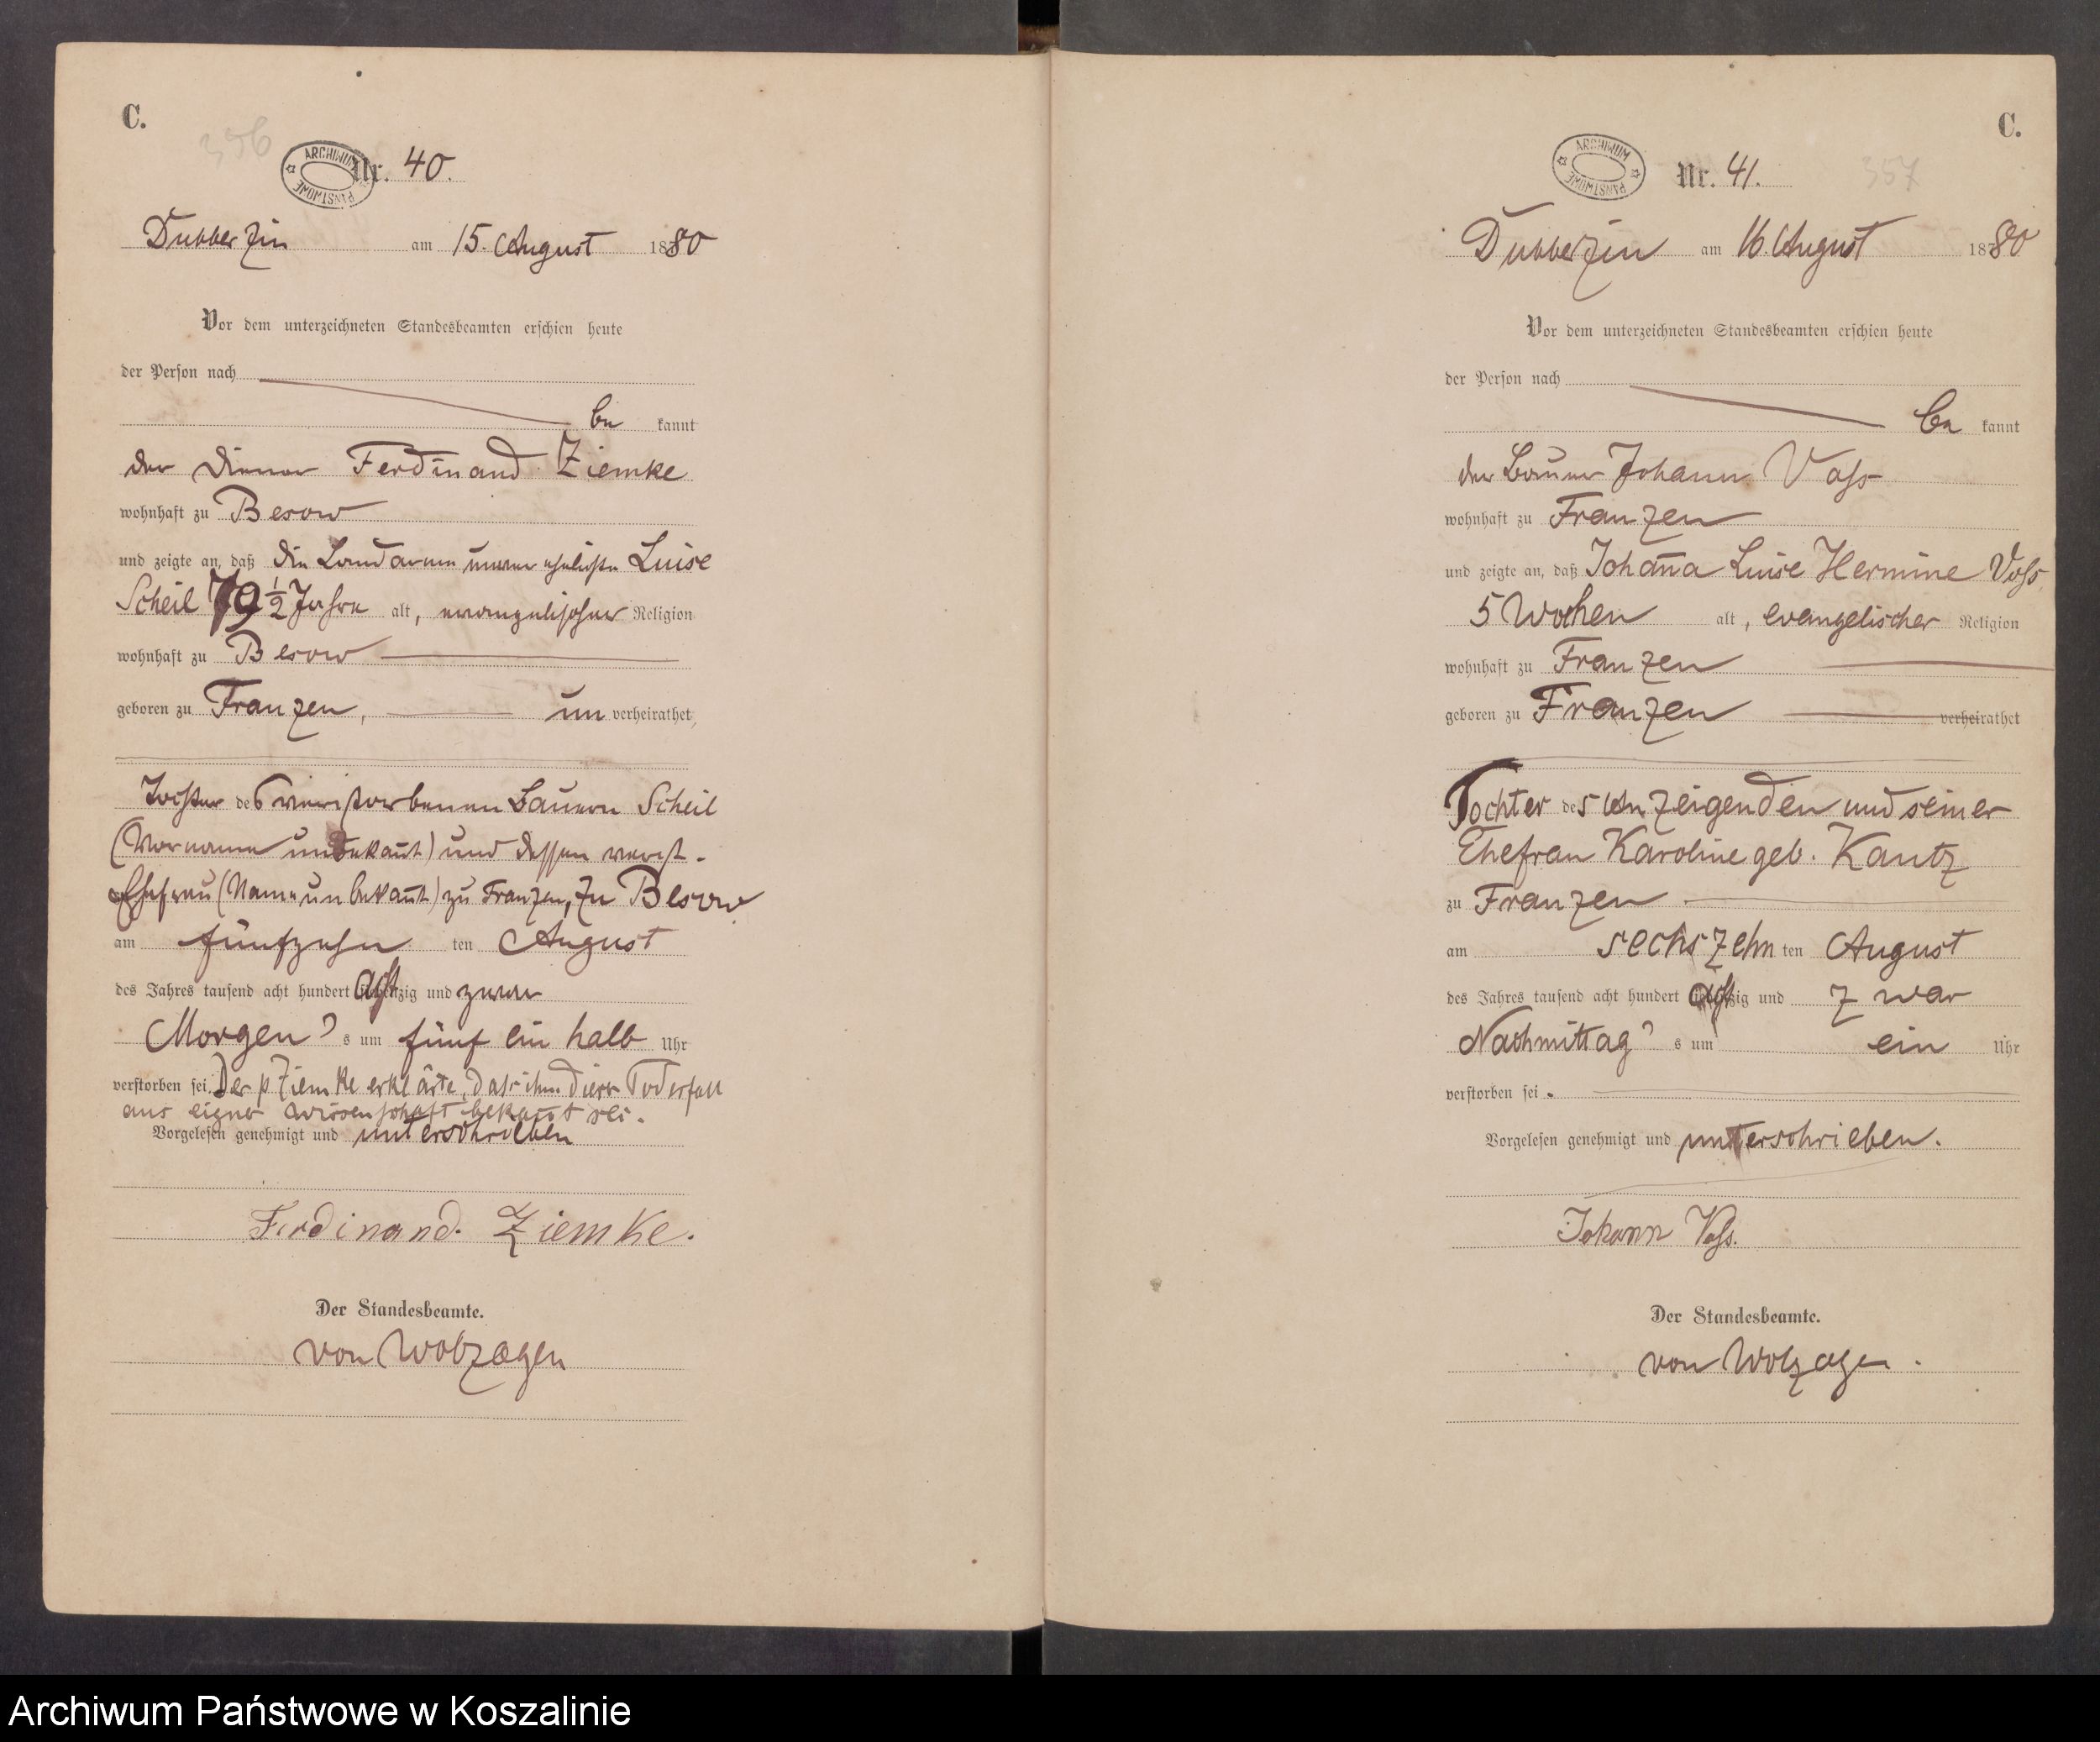 C.
356
ARCHIWUM PAŃSTWOWE
Nr. 40.
Dubberzin am 15. August 1880
Vor dem unterzeichneten Standesbeamten erschien heute
der Person nach
be kannt
der Diener Ferdinand Ziemke
wohnhaft zu Besow
und zeigte an, daß die Landarme unverehelichte Luise
Scheil 79 1/2 Jahre alt, evangelischer Religion
wohnhaft zu Besow
geboren zu Franzen, un verheirathet,
Tochter des verstorbenen Bauern Scheil
(Vorname unbekan̄t) und dessen verst.
Ehefrau (Name unbekan̄t) zu Franzen, zu Besow
am fünfzehn ten August
des Jahres tausend acht hundert achtzig und zwar
Morgen s um fünf ein halb Uhr
verstorben sei. Der p Ziemke erklärte, daß ihm dieser Todesfall
aus eigner Wissenschaft bekan̄t sei.
Vorgelesen genehmigt und unterschrieben
Ferdinand. Ziemke.
Der Standesbeamte.
von Wolzogen
C.
357
ARCHIWUM PAŃSTWOWE
Nr. 41.
Dubberzin am 16. August 1880
Vor dem unterzeichneten Standesbeamten erschien heute
der Person nach
be kannt
der Bauer Johann Voss
wohnhaft zu Franzen
und zeigte an, daß Johan̄a Luise Hermine Voss
5 Wochen alt, evangelischer Religion
wohnhaft zu Franzen
geboren zu Franzen verheirathet
Tochter des Anzeigenden und seiner
Ehefrau Karoline geb. Kautz
zu Franzen
am sechszehn ten August
des Jahres tausend acht hundert achtzig und zwar
Nachmittag s um ein Uhr
verstorben sei.
Vorgelesen genehmigt und unterschrieben.
Johann Voss.
Der Standesbeamte.
von Wolzogen.
Archiwum Państwowe w Koszalinie